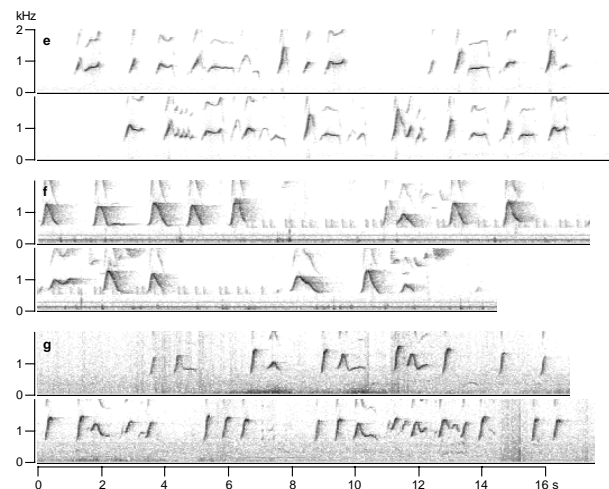 kHz
2
e
1
0
1
0
f
1
0
1
0
g
1
0
1
0
0 2 4 6 8 10 12 14 16 s